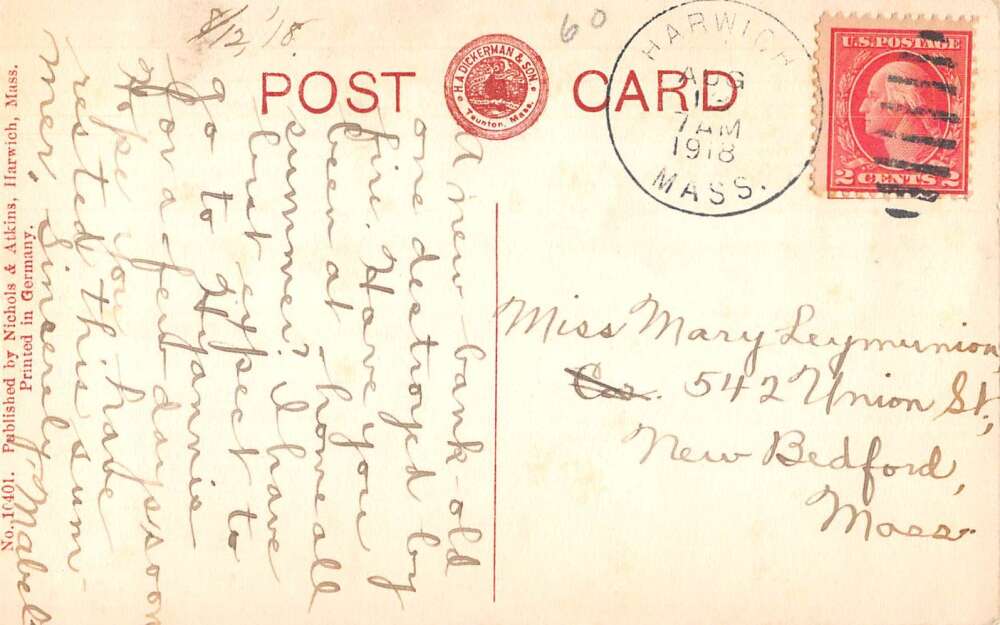 8/12, '18.
60
POST CARD
H. A. DICKERMAN & SON
Taunton, Mass.
HARWICH
AUG
7 AM
1918
MASS.
U.S. POSTAGE
2 CENTS 2
A new bank - old
one destroyed by
fire. Have you
been at home all
summer? I have
but expect to
go to Hyannis
for a few days soon
Hope you have
rested this sum-
mer. Sincerely, Mabel.
Miss Mary Leymunion,
Co. 542 Union St.,
New Bedford,
Mass.
No. 10401. Published by Nichols & Atkins, Harwich, Mass.
Printed in Germany.